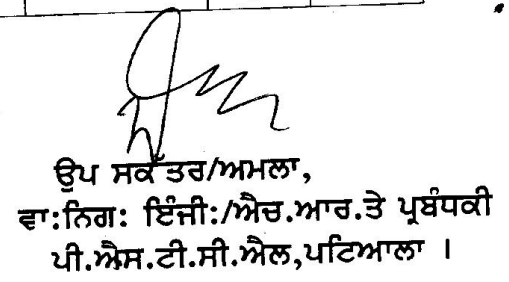 ਉਪ ਸਕੱਤਰ/ਅਮਲਾ,
ਵਾ:ਨਿਗ: ਇੰਜੀ:/ਐਚ.ਆਰ.ਤੇ ਪ੍ਰਬੰਧਕੀ
ਪੀ.ਐਸ.ਟੀ.ਸੀ.ਐਲ,ਪਟਿਆਲਾ ।